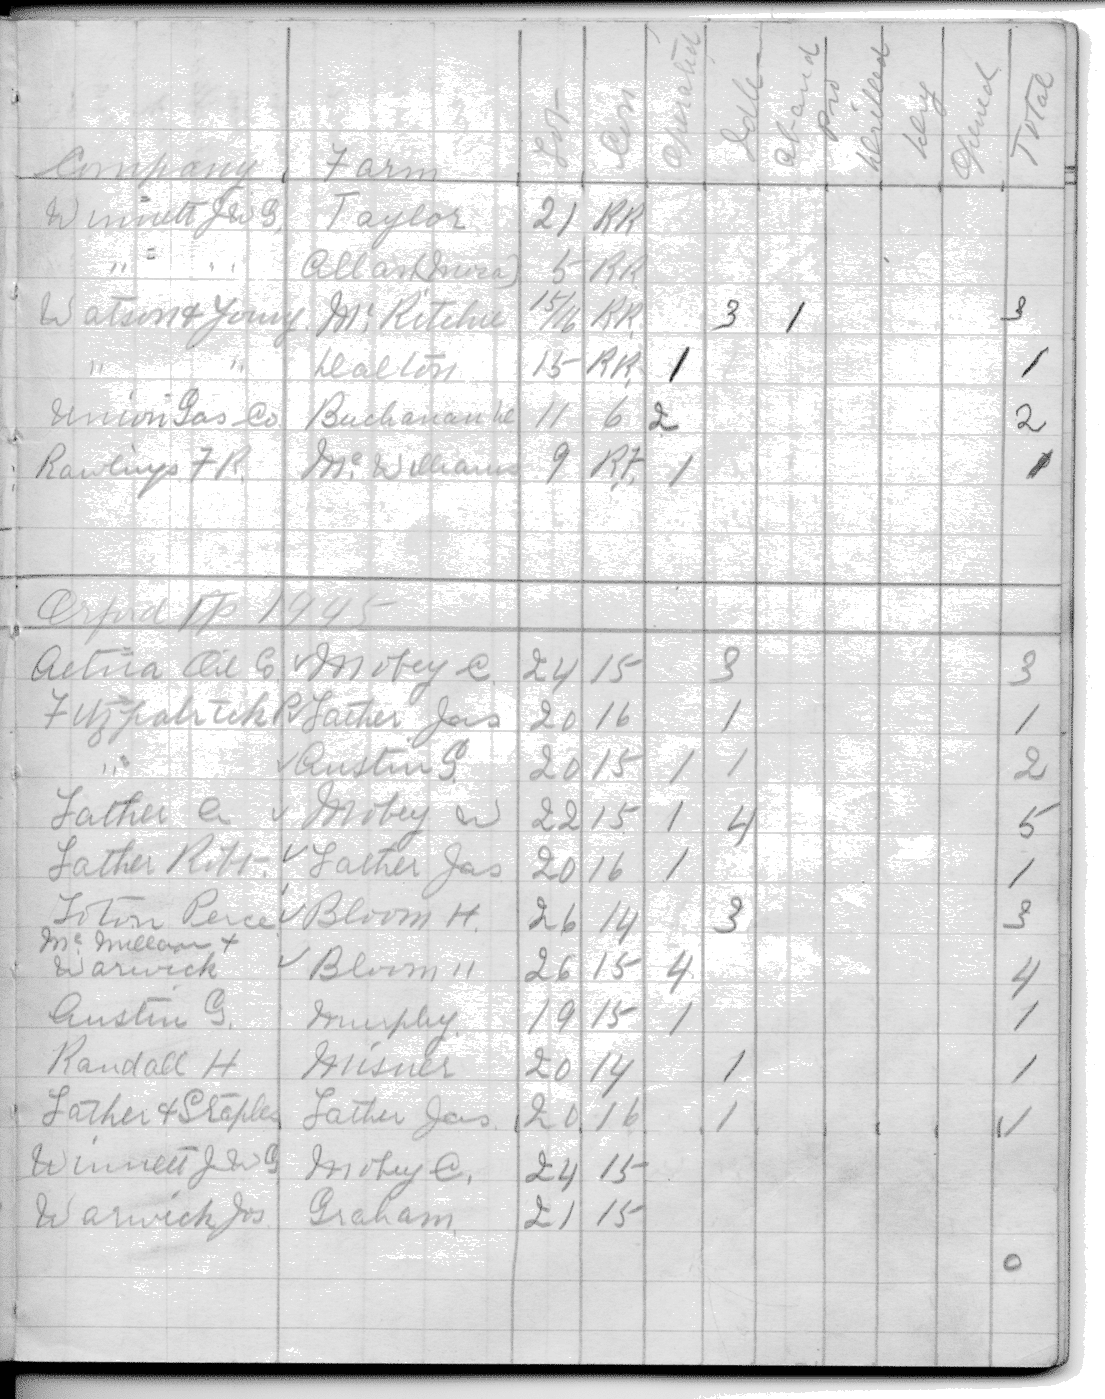 Company Farm Lot Con Operated Idle Aband Pro Drilled Dry Opened Total
Winnett J W G. Taylor 21 RR
" " " 5 RR
Watson & Young Mc Ritchie 15/16 RR 3 1 3
" " Dalton 15 RR 1 1
Union Gas Co Buchanan 11 6 2 2
Rawlings F R. Mc Williams 9 R.F. 1 1
Orford Tp 1945
Aetna Oil Co ✓ Mobey C. 24 15 3 3
Fitzpatrick R ✓ Lather Jas 20 16 1 1
" ✓ Austin G. 20 15 1 1 2
Lather C ✓ Mobey W 22 15 1 4 5
Lather Robt. ✓ Lather Jas 20 16 1 1
Loton Perce ✓ Bloom H. 26 14 3 3
Mc Millan +
Warwick ✓ Bloom H 26 15 4 4
Austin G. Murphy 19 15 1 1
Randall H Misner 20 14 1 1
Lather & Staples Lather Jas. 20 16 1 1
Winnett J W G Mobey C. 24 15
Warwick Jos Graham 21 15
0